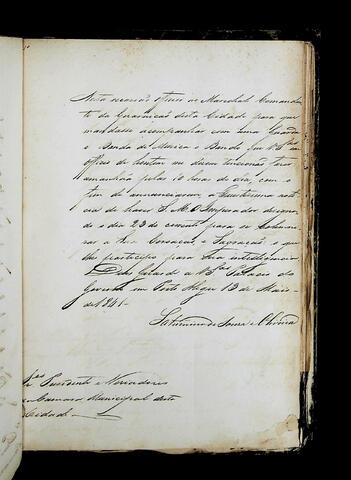 Nesta occasião officio ao Marechal Comandan
te da Guarnicaõ desta Cidade para que
mandasse acompanhar com uma Guarda
e Banda de Musica o Bando que VSas
officio de hontem me dizem tencionão fazer
amanhãa pelas 10 horas do dia com o
fim de annunciarem a faustissima noti
cia de haver S. M. O Imperador designa
do o dia 23 do corrente para se solemni
zar a Sua Coroaçaõ, e Sagraçaõ, o que
lhes participo para sua intelligencia.
Deos Guarde a VSas Palacio do
Governo em Porto Alegre 13 de Maio
de 1841
Saturnino de Souza e Oliveira
Presidente e Vereadores
Camara Municipal desta
Cidade